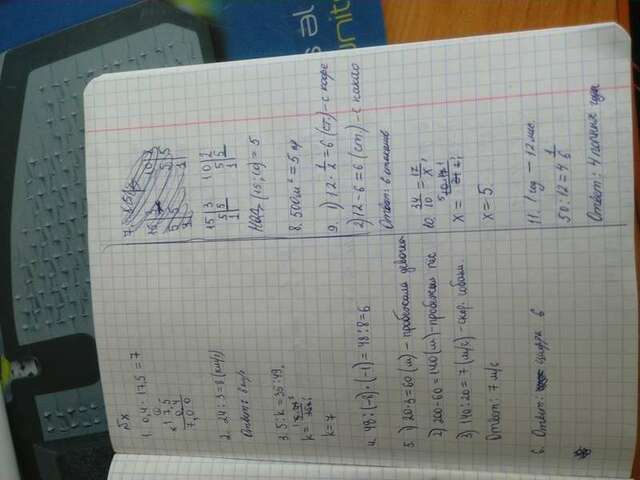 1. 0,4 · 17,5 = 7
17,5
0,4
7,00
2. 24 : 3 = 8 (км/ч)
Ответ: 8 км/ч
3. 5 : k = 35 : 49,
k =
k = 7
4. 48 : (-8) · (-1) = 48 : 8 = 6
5. 1) 20 · 3 = 60 (м) – пробежала девочка
2) 200 - 60 = 140 (м) – пробежал пёс
3) 140 : 20 = 7 (м/с) – скор. собаки.
Ответ: 7 м/с
6. Ответ: цифра 6
7.
15 3 10 2
5 5 5 5
1 1
НОД (15; 10) = 5
8. 500 м² = 5 ар
9. 1) 12 · 1/2 = 6 (ст) – с кофе
2) 12 - 6 = 6 (ст) – с какао
Ответ: 6 стаканов
10. 24/10 = 12/x,
x =
x = 5
11. 1 год – 12 мес.
50 : 12 = 4 1/6
Ответ: 4 полных года